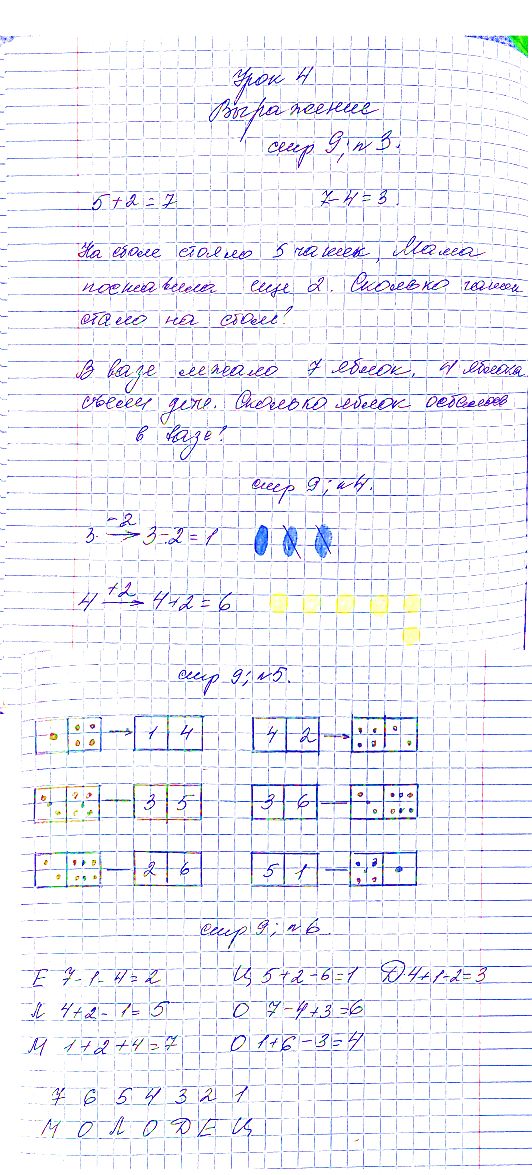 Урок 4
Выражение
стр 9; n 3.
5+2=7 7-4=3.
На столе стояло 5 чашек, Мама
поставила еще 2. Сколько чашек
стало на столе?
В вазе лежало 7 яблок. 4 яблока
съели дети. Сколько яблок осталось
в вазе?
стр 9; n4.
3 -2→ 3-2=1
4 +2→ 4+2=6
стр 9; n5.
→ 1 4 4 2 →
3 5 3 6
2 6 5 1
стр 9; n6
Е 7-1-4=2 Ц 5+2-6=1 Д 4+1-2=3
Л 4+2-1=5 О 7-4+3=6
М 1+2+4=7 О 1+6-3=4
7 6 5 4 3 2 1
М О Л О Д Е Ц